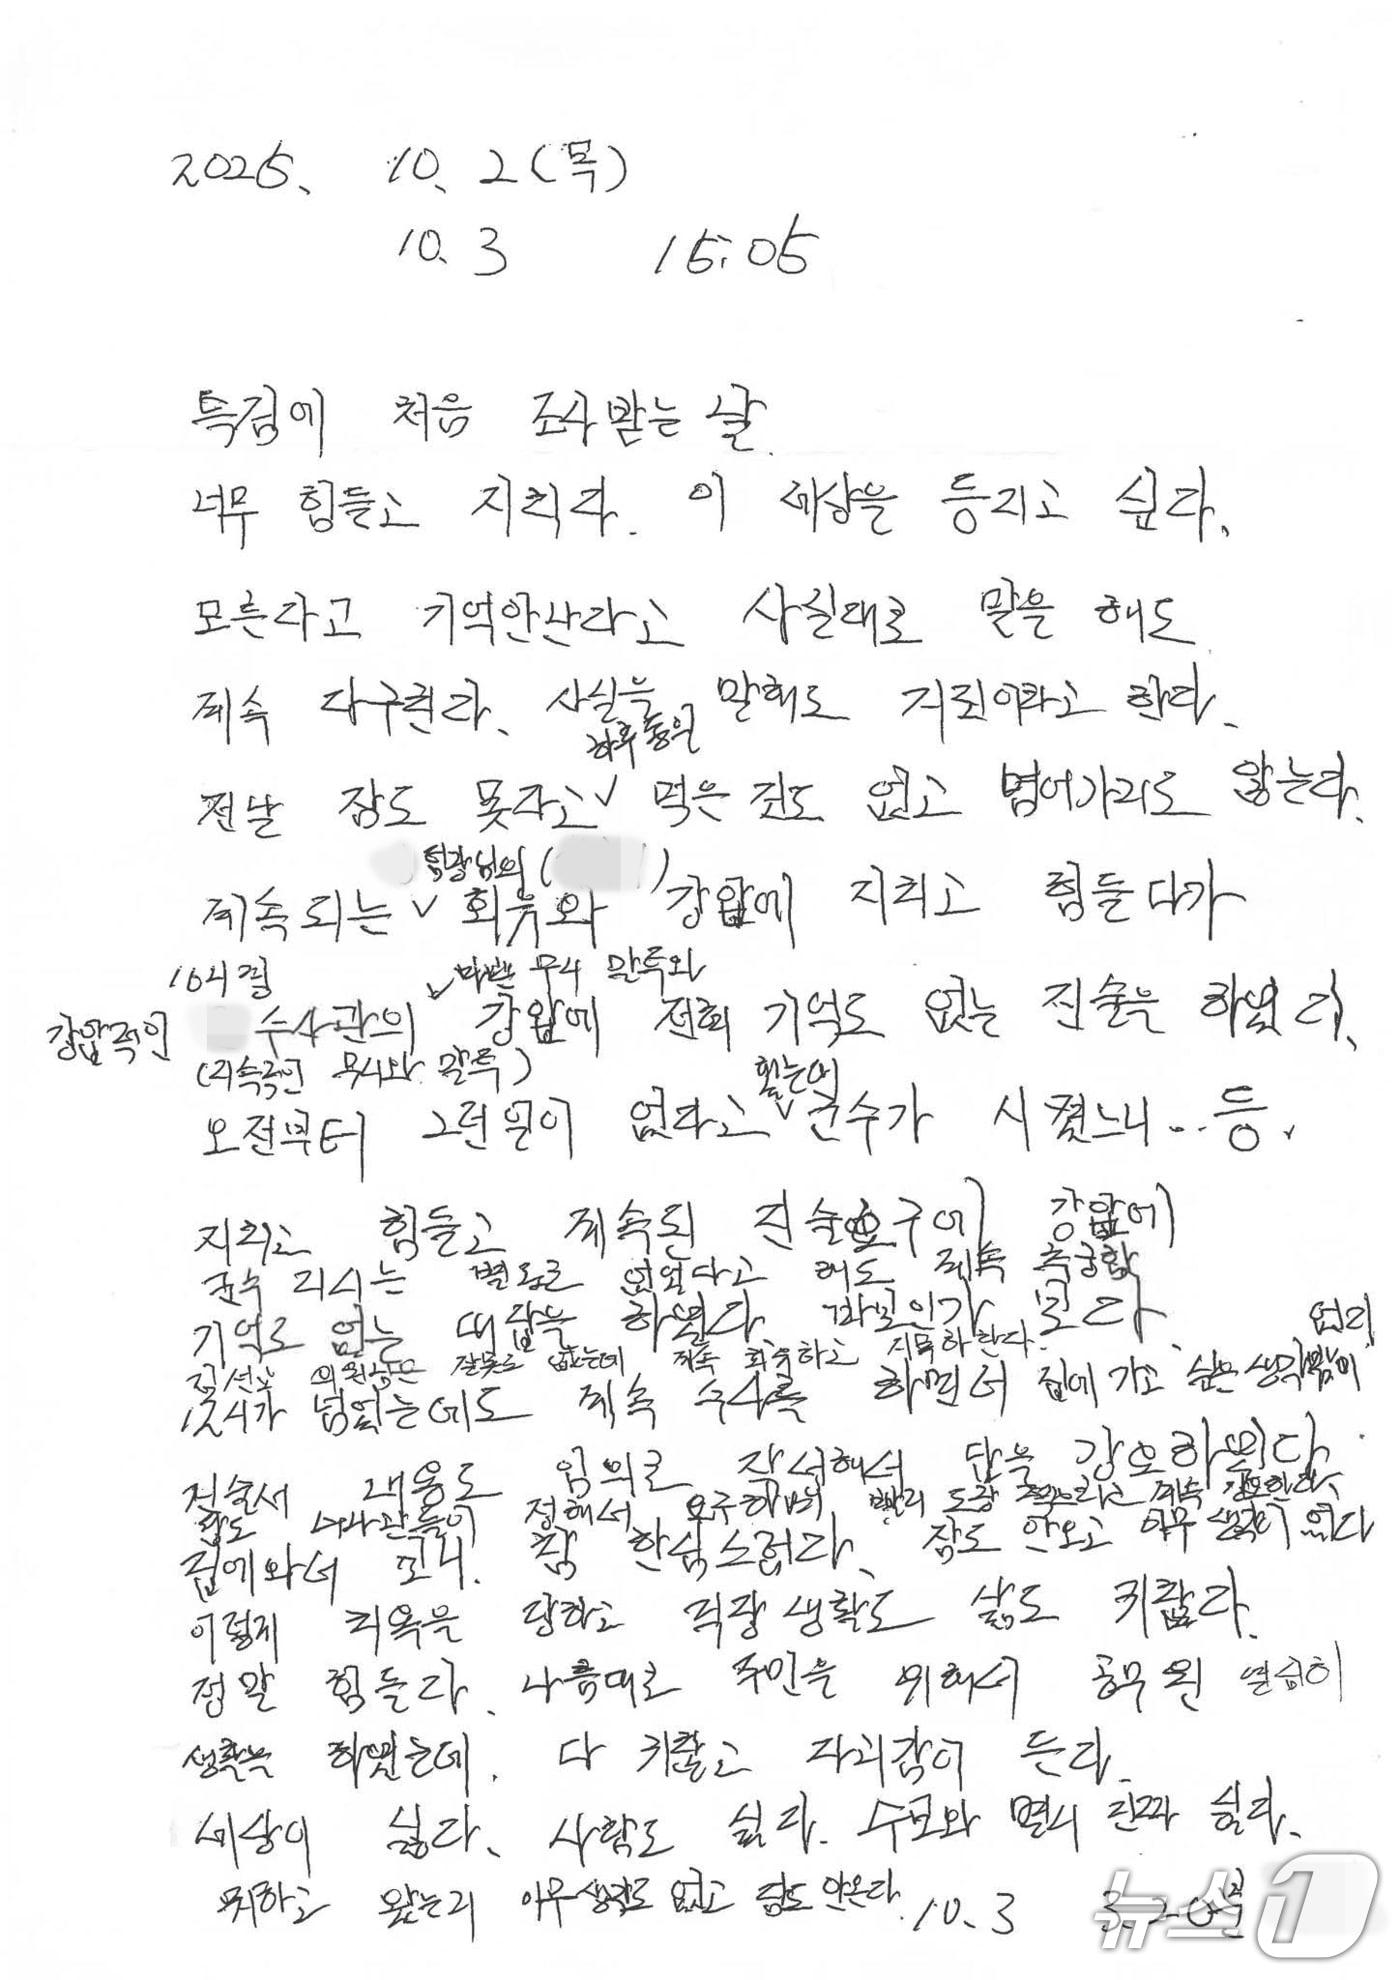 2025. 10. 2(목)
10. 3 15:05
특검에 처음 조사받는 날.
너무 힘들고 지치다. 이 세상을 등지고 싶다.
모른다고 기억안난다고 사실대로 말을 해도
계속 다구친다. 사실을 말해도 거짓이라고 한다.
하루종일
전날 잠도 못자고 ∨ 먹은 것도 없고 멍어가리로 않는다.
팀장님의 ( )
계속되는 ∨ 회유와 강압에 지치고 힘들다가
∨ 무시 말투와
강압적인 수사관의 강압에 전혀 기억도 없는 진술을 하였다.
(지속적인 무시와 말투)
했는데
오전부터 그런일이 없다고 ∨ 군수가 시켰느니... 등.
지치고 힘들고 계속된 진술요구에 강압에
군수 지시는 별도로 없었다고 해도 계속 추궁함
기억도 없는 대답을 하였다. 바보인가 보다.
의원님은 잘못도 없는데 계속 회유하고 지목하란다. 없다
12시가 넘었는데도 계속 수사를 하면서 집에 가고 싶은 생각밖이
진술서 내용도 임의로 작성해서 답을 강요하였다.
답도 수사관들이 정해서 요구하며 빨리 도장 찍으라고 계속 강요한다.
집에와서 보니 참 한심스럽다. 잠도 안오고 아무 생각이 없다
이렇게 치욕을 당하고 직장생활도 삶도 귀찮다.
정말 힘들다. 나름대로 주민을 위해서 공무원 열심히
생활을 하였는데 다 귀찮고 자괴감이 든다.
세상이 싫다. 사람도 싫다. 수모와 멸시 진짜 싫다.
뭐하고 왔는지 아무생각도 없고 잠도 안온다. 10. 3 3:20분
뉴스1